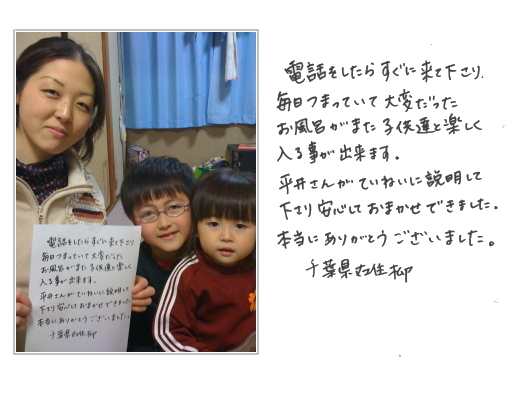 電話をしたらすぐに来て下さり、
毎日つまっていて大変だった
お風呂がまた子供達と楽しく
入る事が出来ます。
平井さんがていねいに説明して
下さり安心しておまかせできました。
本当にありがとうございました。
千葉県在住 柳
電話をしたらすぐに来て下さり、
毎日つまっていて大変だった
お風呂がまた子供達と楽しく
入る事が出来ます。
平井さんがていねいに説明して
下さり安心しておまかせできました
本当にありがとうございました。
千葉県在住 柳